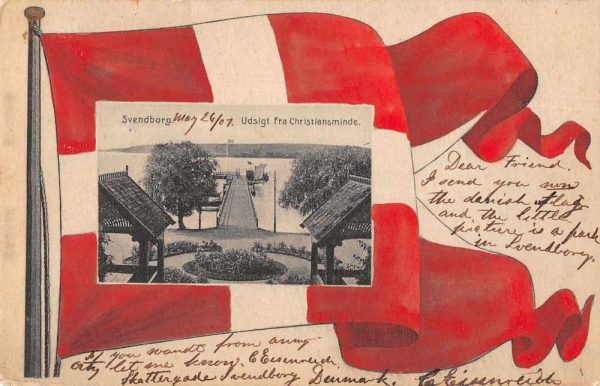 Svendborg. May 26/07. Udsigt fra Christiansminde.
Dear Friend.
I send you now
the danish flag
and the little
picture is a park
in Svendborg.
if you wandt from any
city let me know. C Eisenreich.
Skattergade Svendborg Denmark.
C Eisenreich